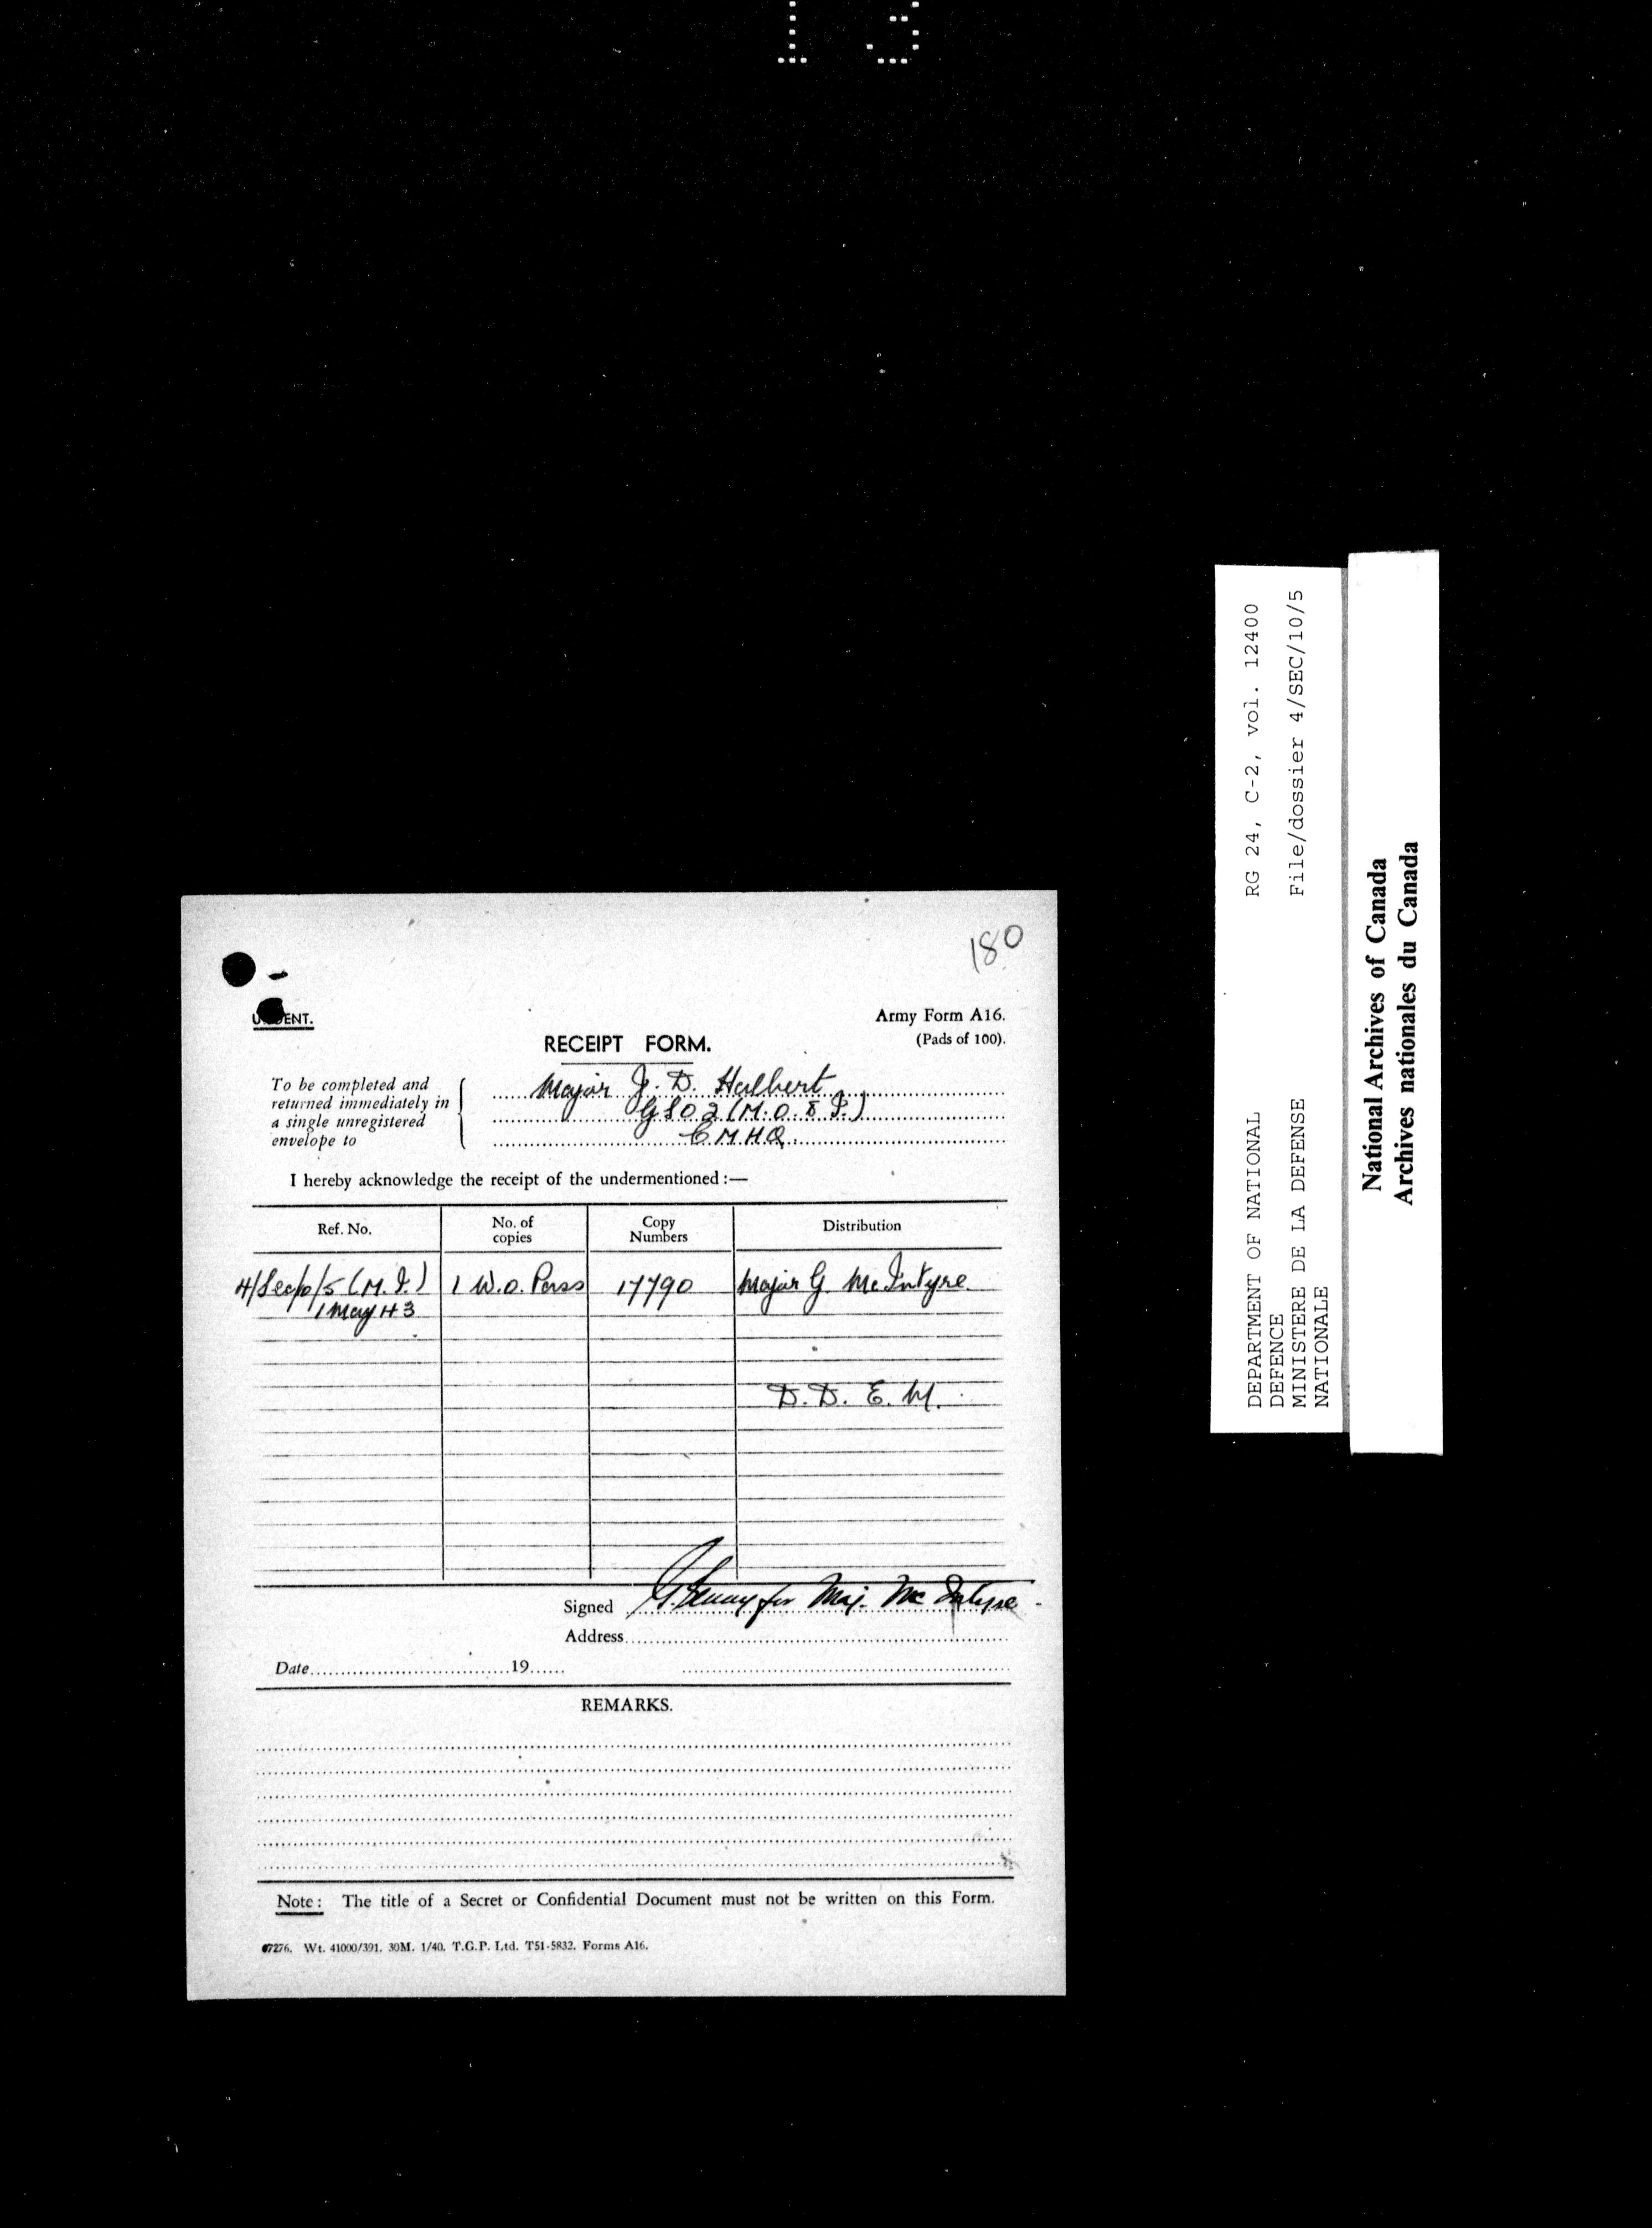 180
ENT.
Army Form A16.
(Pads of 100).
RECEIPT FORM.
To be completed and
returned immediately in
a single unregistered
envelope to
Major J. D. Halbert
GSO2 (M.O. & I.)
CMHQ.
I hereby acknowledge the receipt of the undermentioned :—
Ref. No. No. of copies Copy Numbers Distribution
4/Sec/10/5 (M.I.) 1 W.O. Pass 17790 Major G. McIntyre
1 May 43
D. D. E. M.
Signed for Maj. McIntyre
Address
Date 19
REMARKS.
Note: The title of a Secret or Confidential Document must not be written on this Form.
Wt. 41000/391. 30M. 1/40. T.G.P. Ltd. T51-5832. Forms A16.
DEPARTMENT OF NATIONAL RG 24, C-2, vol. 12400
DEFENCE
MINISTERE DE LA DEFENSE File/dossier 4/SEC/10/5
NATIONALE
National Archives of Canada
Archives nationales du Canada